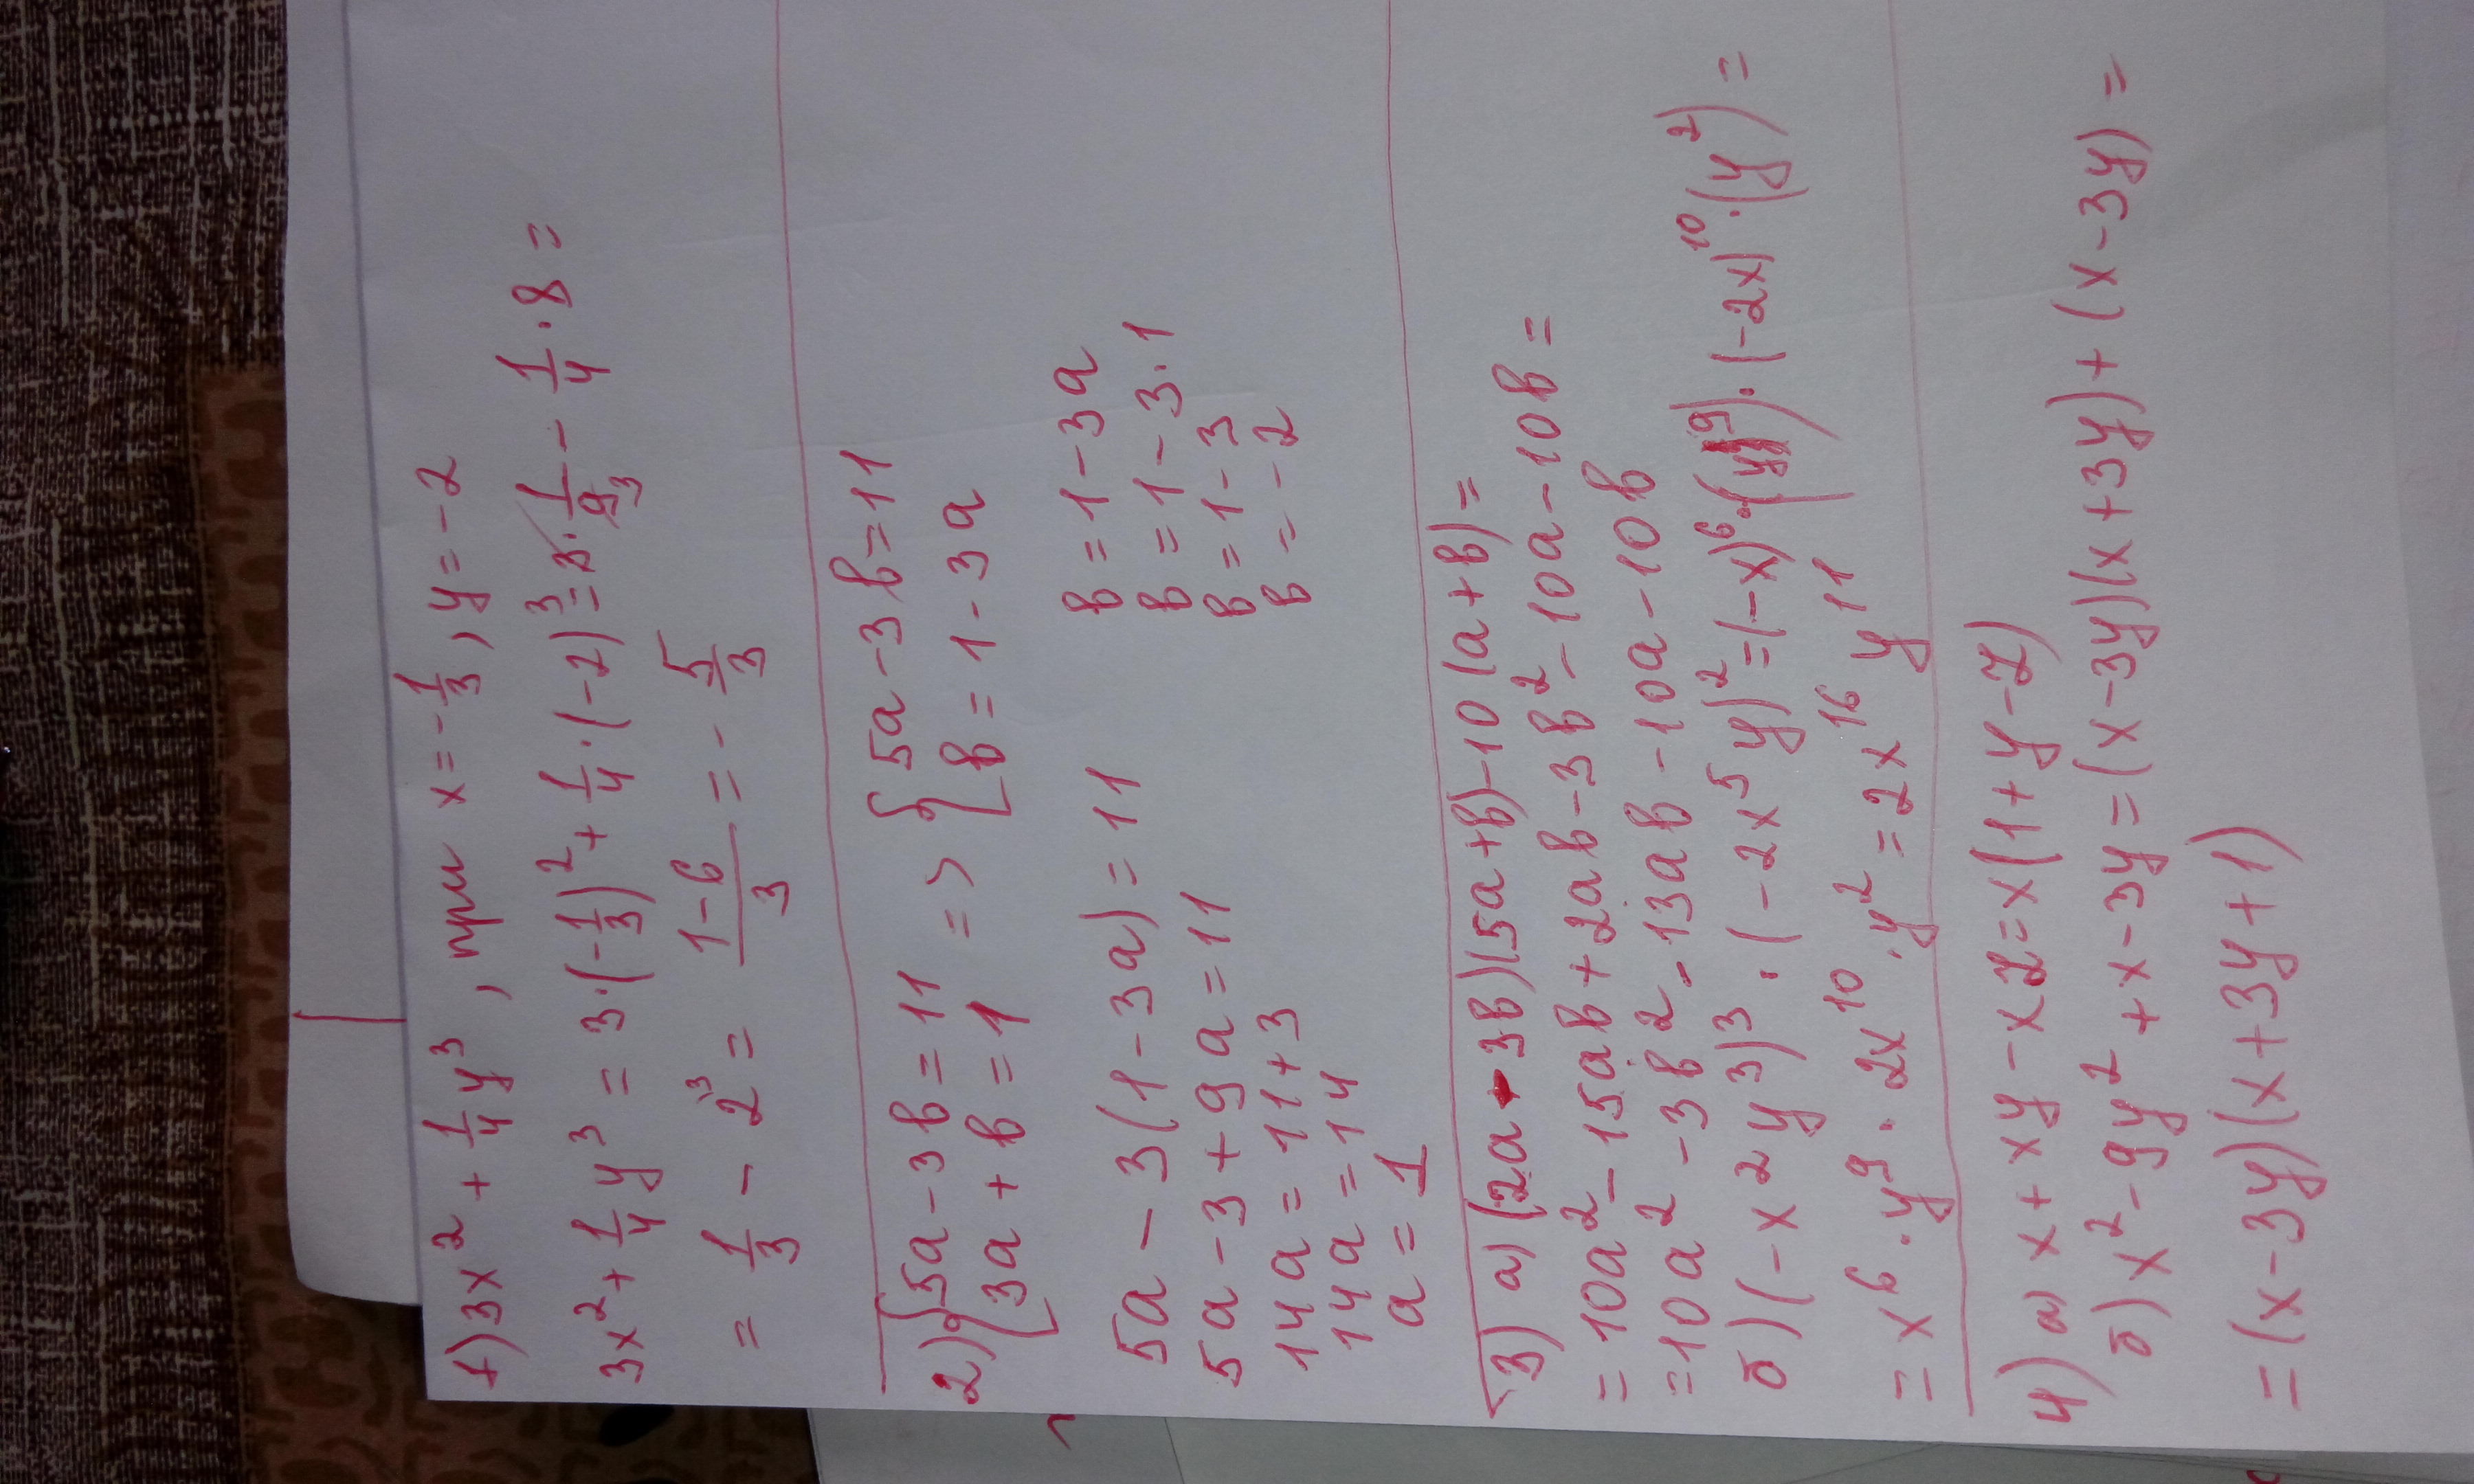 1) 3x² + 1/4 y³, при x = -1/3, y = -2
3x² + 1/4 y³ = 3·(-1/3)² + 1/4·(-2)³ = 3·1/9 - 1/4·8 =
= 1/3 - 2 = (1-6)/3 = -5/3
2) {5a - 3b = 11 => {5a - 3b = 11
{3a + b = 1 {b = 1 - 3a
5a - 3(1 - 3a) = 11 b = 1 - 3a
5a - 3 + 9a = 11 b = 1 - 3·1
14a = 11 + 3 b = 1 - 3
14a = 14 b = -2
a = 1
3) а) (2a - 3b)(5a + b) - 10(a + b) =
= 10a² - 15ab + 2ab - 3b² - 10a - 10b =
= 10a² - 3b² - 13ab - 10a - 10b
б) (-x²y³)³ · (-2x⁵y)² = (-x)⁶·(y⁹)·(-2x)¹⁰·(y²) =
= x⁶·y⁹·2x¹⁰·y² = 2x¹⁶y¹¹
4) а) x + xy - xz = x(1 + y - z)
б) x² - 9y² + x - 3y = (x - 3y)(x + 3y) + (x - 3y) =
= (x - 3y)(x + 3y + 1)